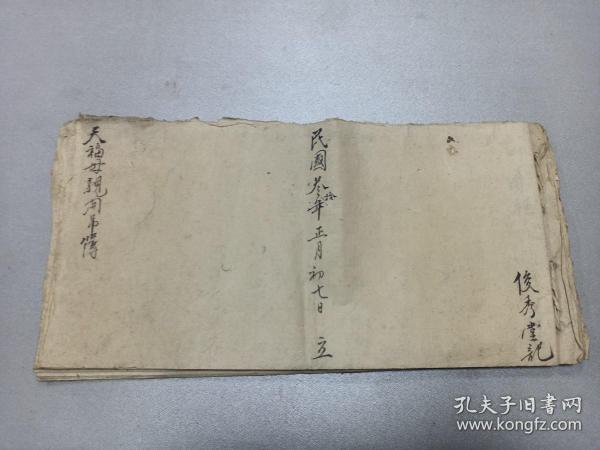 俊秀堂記
民國叁拾年正月初七日 立
天福母親開吊簿
孔夫子旧书网
www.kongfz.com